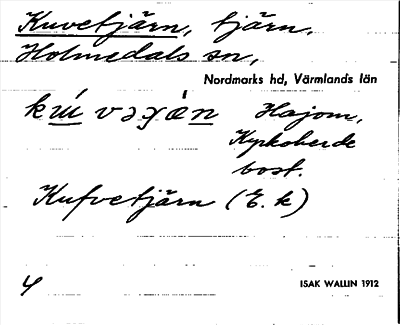 Kuvetjärn, tjärn.
Holmedals sn,
Nordmarks hd, Värmlands län
Hajom,
Kyrkoberde
bost.
Kufvetjärn (E. k)
4
ISAK WALLIN 1912